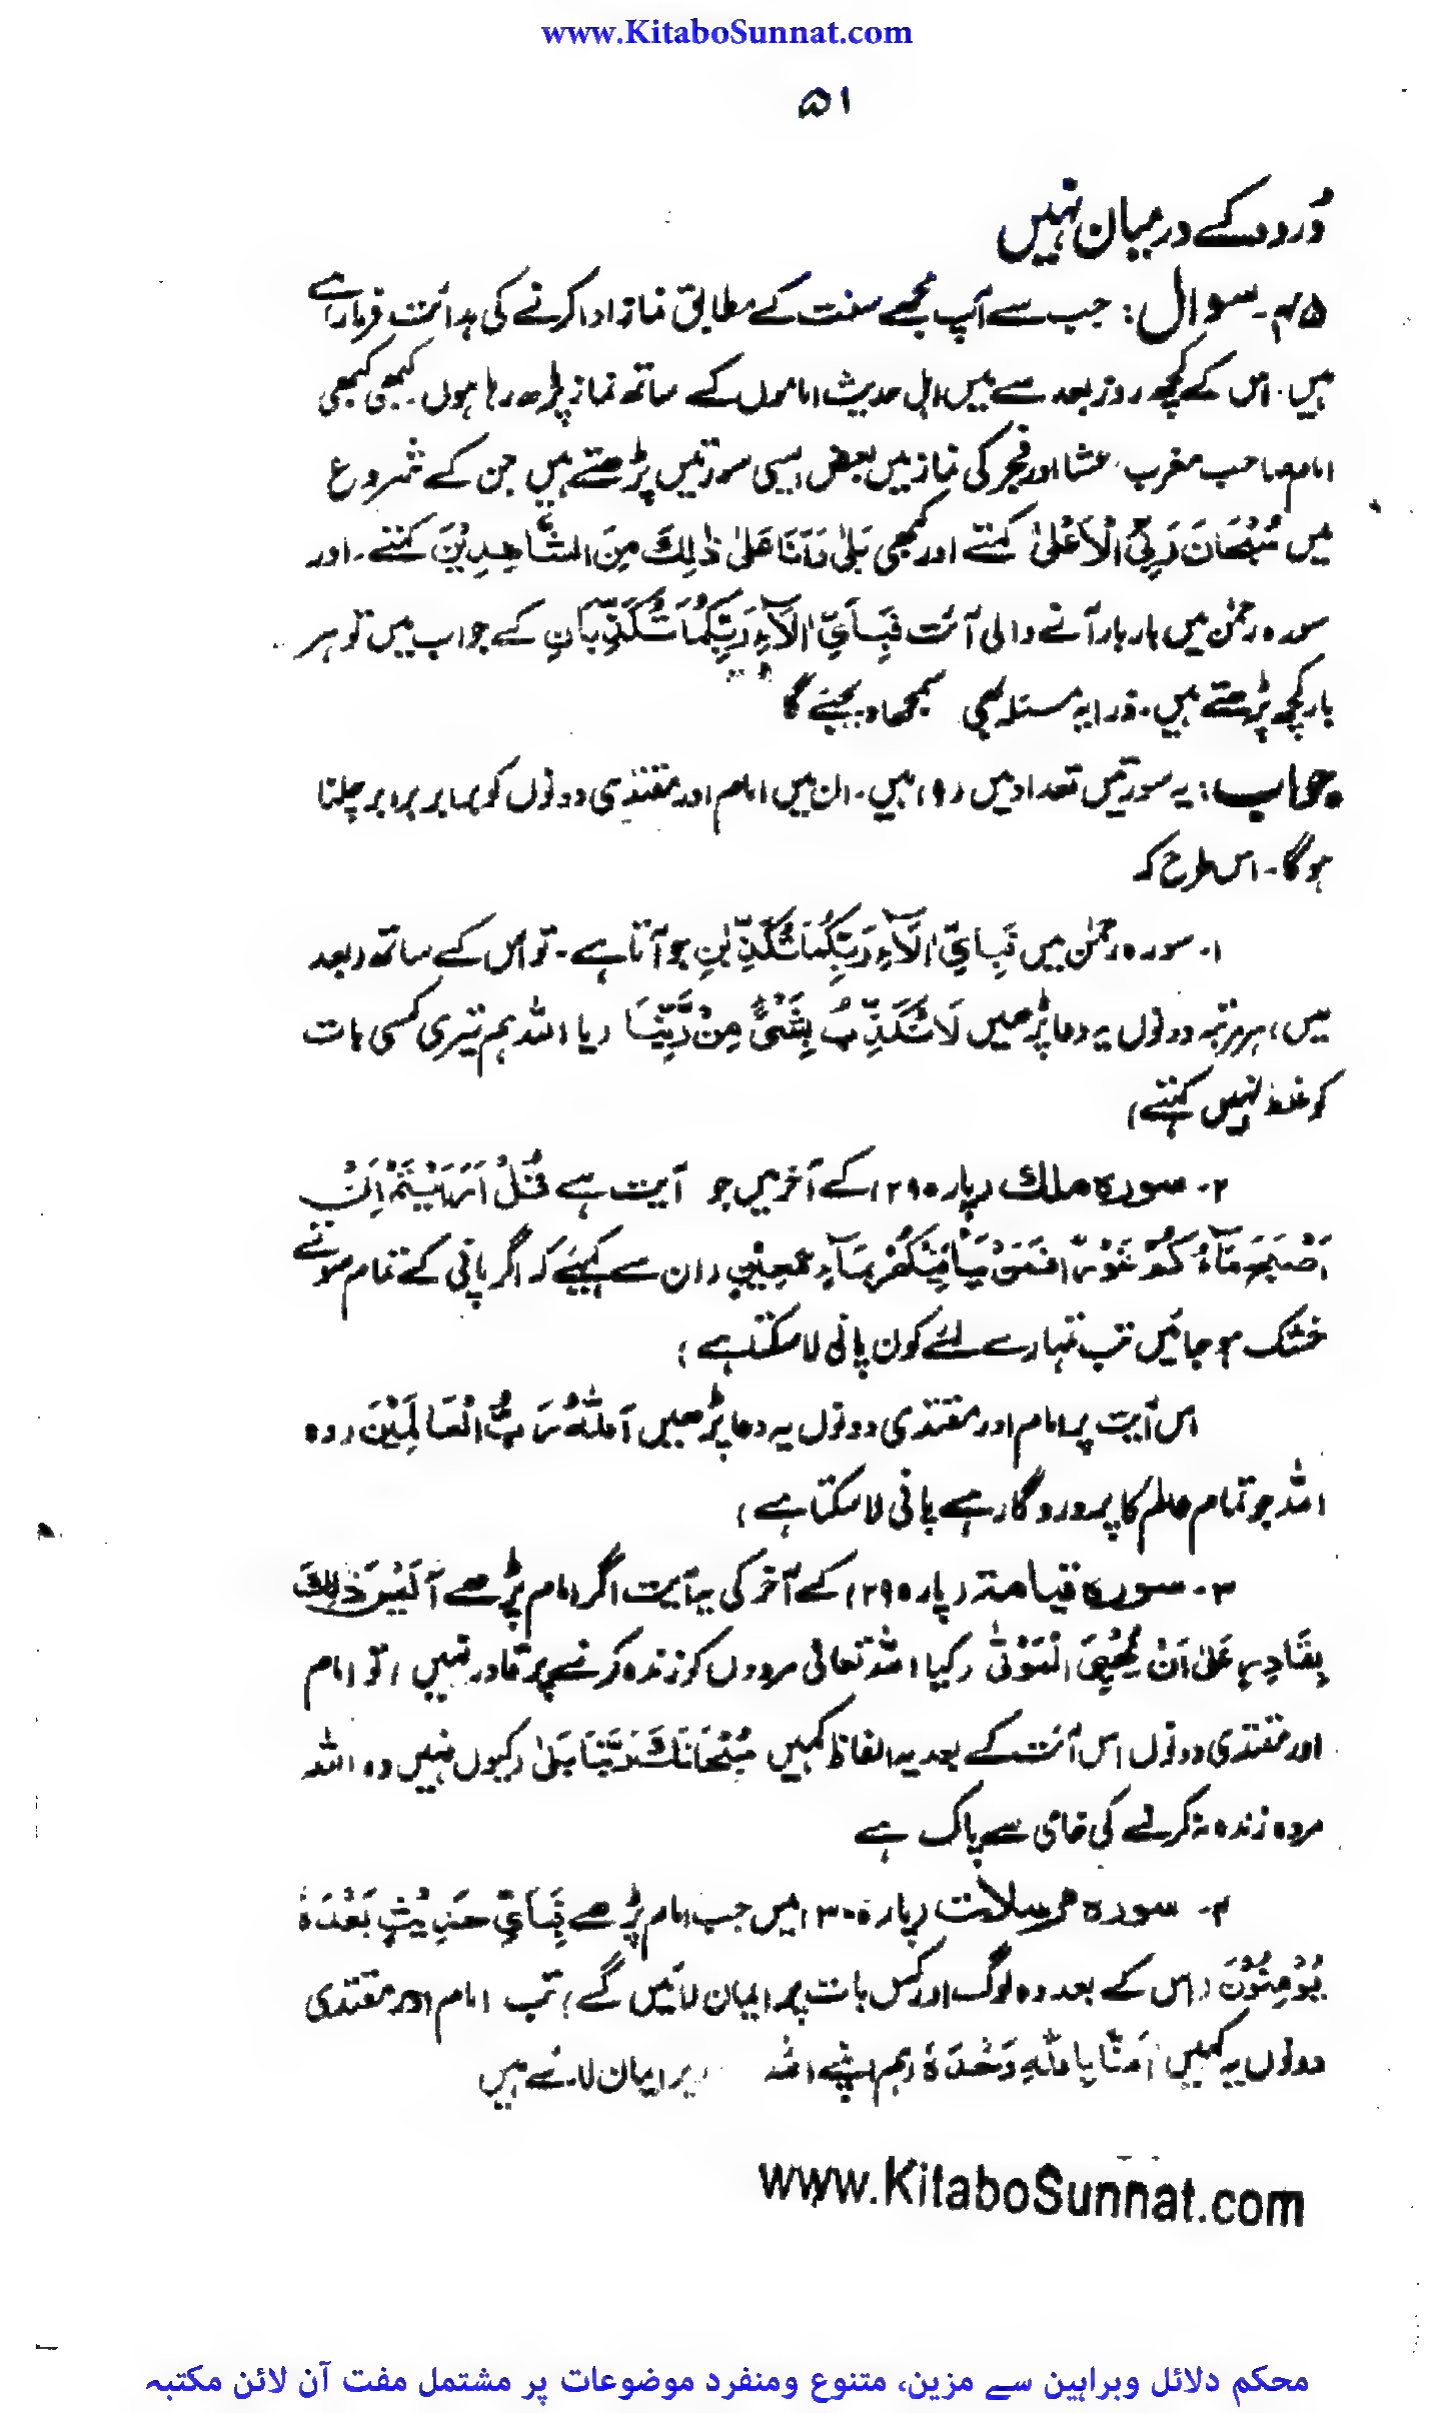 www.KitaboSunnat.com
۵۱
دُرود کے درمیان نہیں
۴۵۔ سوال: جب سے آپ مجھے سنت کے مطابق نماز ادا کرنے کی ہدائت فرما رہے
ہیں۔ اس کے کچھ روز بعد سے میں اہل حدیث اماموں کے ساتھ نماز پڑھ رہا ہوں۔ کبھی کبھی
امام صاحب مغرب، عشا اور فجر کی نماز میں بعض ایسی سورتیں پڑھتے ہیں جن کے شروع
میں سُبْحَانَ رَبِّیَ الْاَعْلیٰ کہتے اور کبھی بَلیٰ وَاَنَا عَلیٰ ذٰلِكَ مِنَ الشَّاهِدِيْنَ کہتے۔ اور
سورہ رحمٰن میں بار بار آنے والی آئت فَبِاَيِّ اٰلَآءِ رَبِّكُمَا تُكَذِّبَانِ کے جواب میں تو ہر
بار کچھ پڑھتے ہیں۔ ذرا یہ مسئلہ بھی سمجھا دیجئے گا
جواب: یہ سورتیں تعداد میں (۹) ہیں۔ ان میں امام اور مقتدی دونوں کو برابر برابر چلنا
ہوگا۔ اس طرح کہ
۱۔ سورہ رحمٰن میں فَبِاَيِّ اٰلَآءِ رَبِّكُمَا تُكَذِّبٰنِ جو آتا ہے۔ تو اُس کے ساتھ (بعد
میں) ہر مرتبہ دونوں یہ دعا پڑھیں لَا نُكَذِّبُ بِشَيْءٍ مِنْ رَّبِّنَا (یا اللہ ہم تیری کسی بات
کو غلط نہیں کہتے)
۲۔ سورہ ملك (پارہ ۲۹) کے آخر میں جو آیت ہے قُلْ اَرَءَيْتُمْ اِنْ
اَصْبَحَ مَآءُ كُمْ غَوْرًا فَمَنْ يَّاْتِيْكُمْ بِمَآءٍ مَّعِيْنٍ (ان سے کہیئے کہ اگر پانی کے تمام سوتے
خشک ہو جائیں تب تمہارے لئے کون پانی لا سکتا ہے)
اس آیت پر امام اور مقتدی دونوں یہ دعا پڑھیں اَللّٰهُ رَبُّ الْعَالَمِيْنَ (وہ
اللہ جو تمام عالم کا پروردگار ہے پانی لا سکتا ہے)
۳۔ سورہ قیامة (پارہ ۲۹) کے آخر کی یہ آیت اگر امام پڑھے اَلَيْسَ ذٰلِكَ
بِقَادِرٍ عَلیٰ اَنْ يُّحْيِيَ الْمَوْتیٰ (کیا اللہ تعالیٰ مردوں کو زندہ کرنے پر قادر نہیں) تو امام
اور مقتدی دونوں اس آئت کے بعد یہ الفاظ کہیں سُبْحَانَكَ رَبَّنَا بَلیٰ (کیوں نہیں وہ اللہ
مردہ زندہ نہ کرنے کی خامی سے پاک ہے
۴۔ سورہ مرسلات (پارہ ۳۰) میں جب امام پڑھے فَبِاَيِّ حَدِيْثٍ بَعْدَهٗ
يُؤْمِنُوْنَ (اس کے بعد وہ لوگ اور کس بات پر ایمان لائیں گے) تب امام اور مقتدی
دونوں یہ کہیں اٰمَنَّا بِاللّٰهِ وَحْدَهٗ (ہم اپنے اللہ پر ایمان لائے ہیں
www.KitaboSunnat.com
محکم دلائل وبراہین سے مزین، متنوع ومنفرد موضوعات پر مشتمل مفت آن لائن مکتبہ